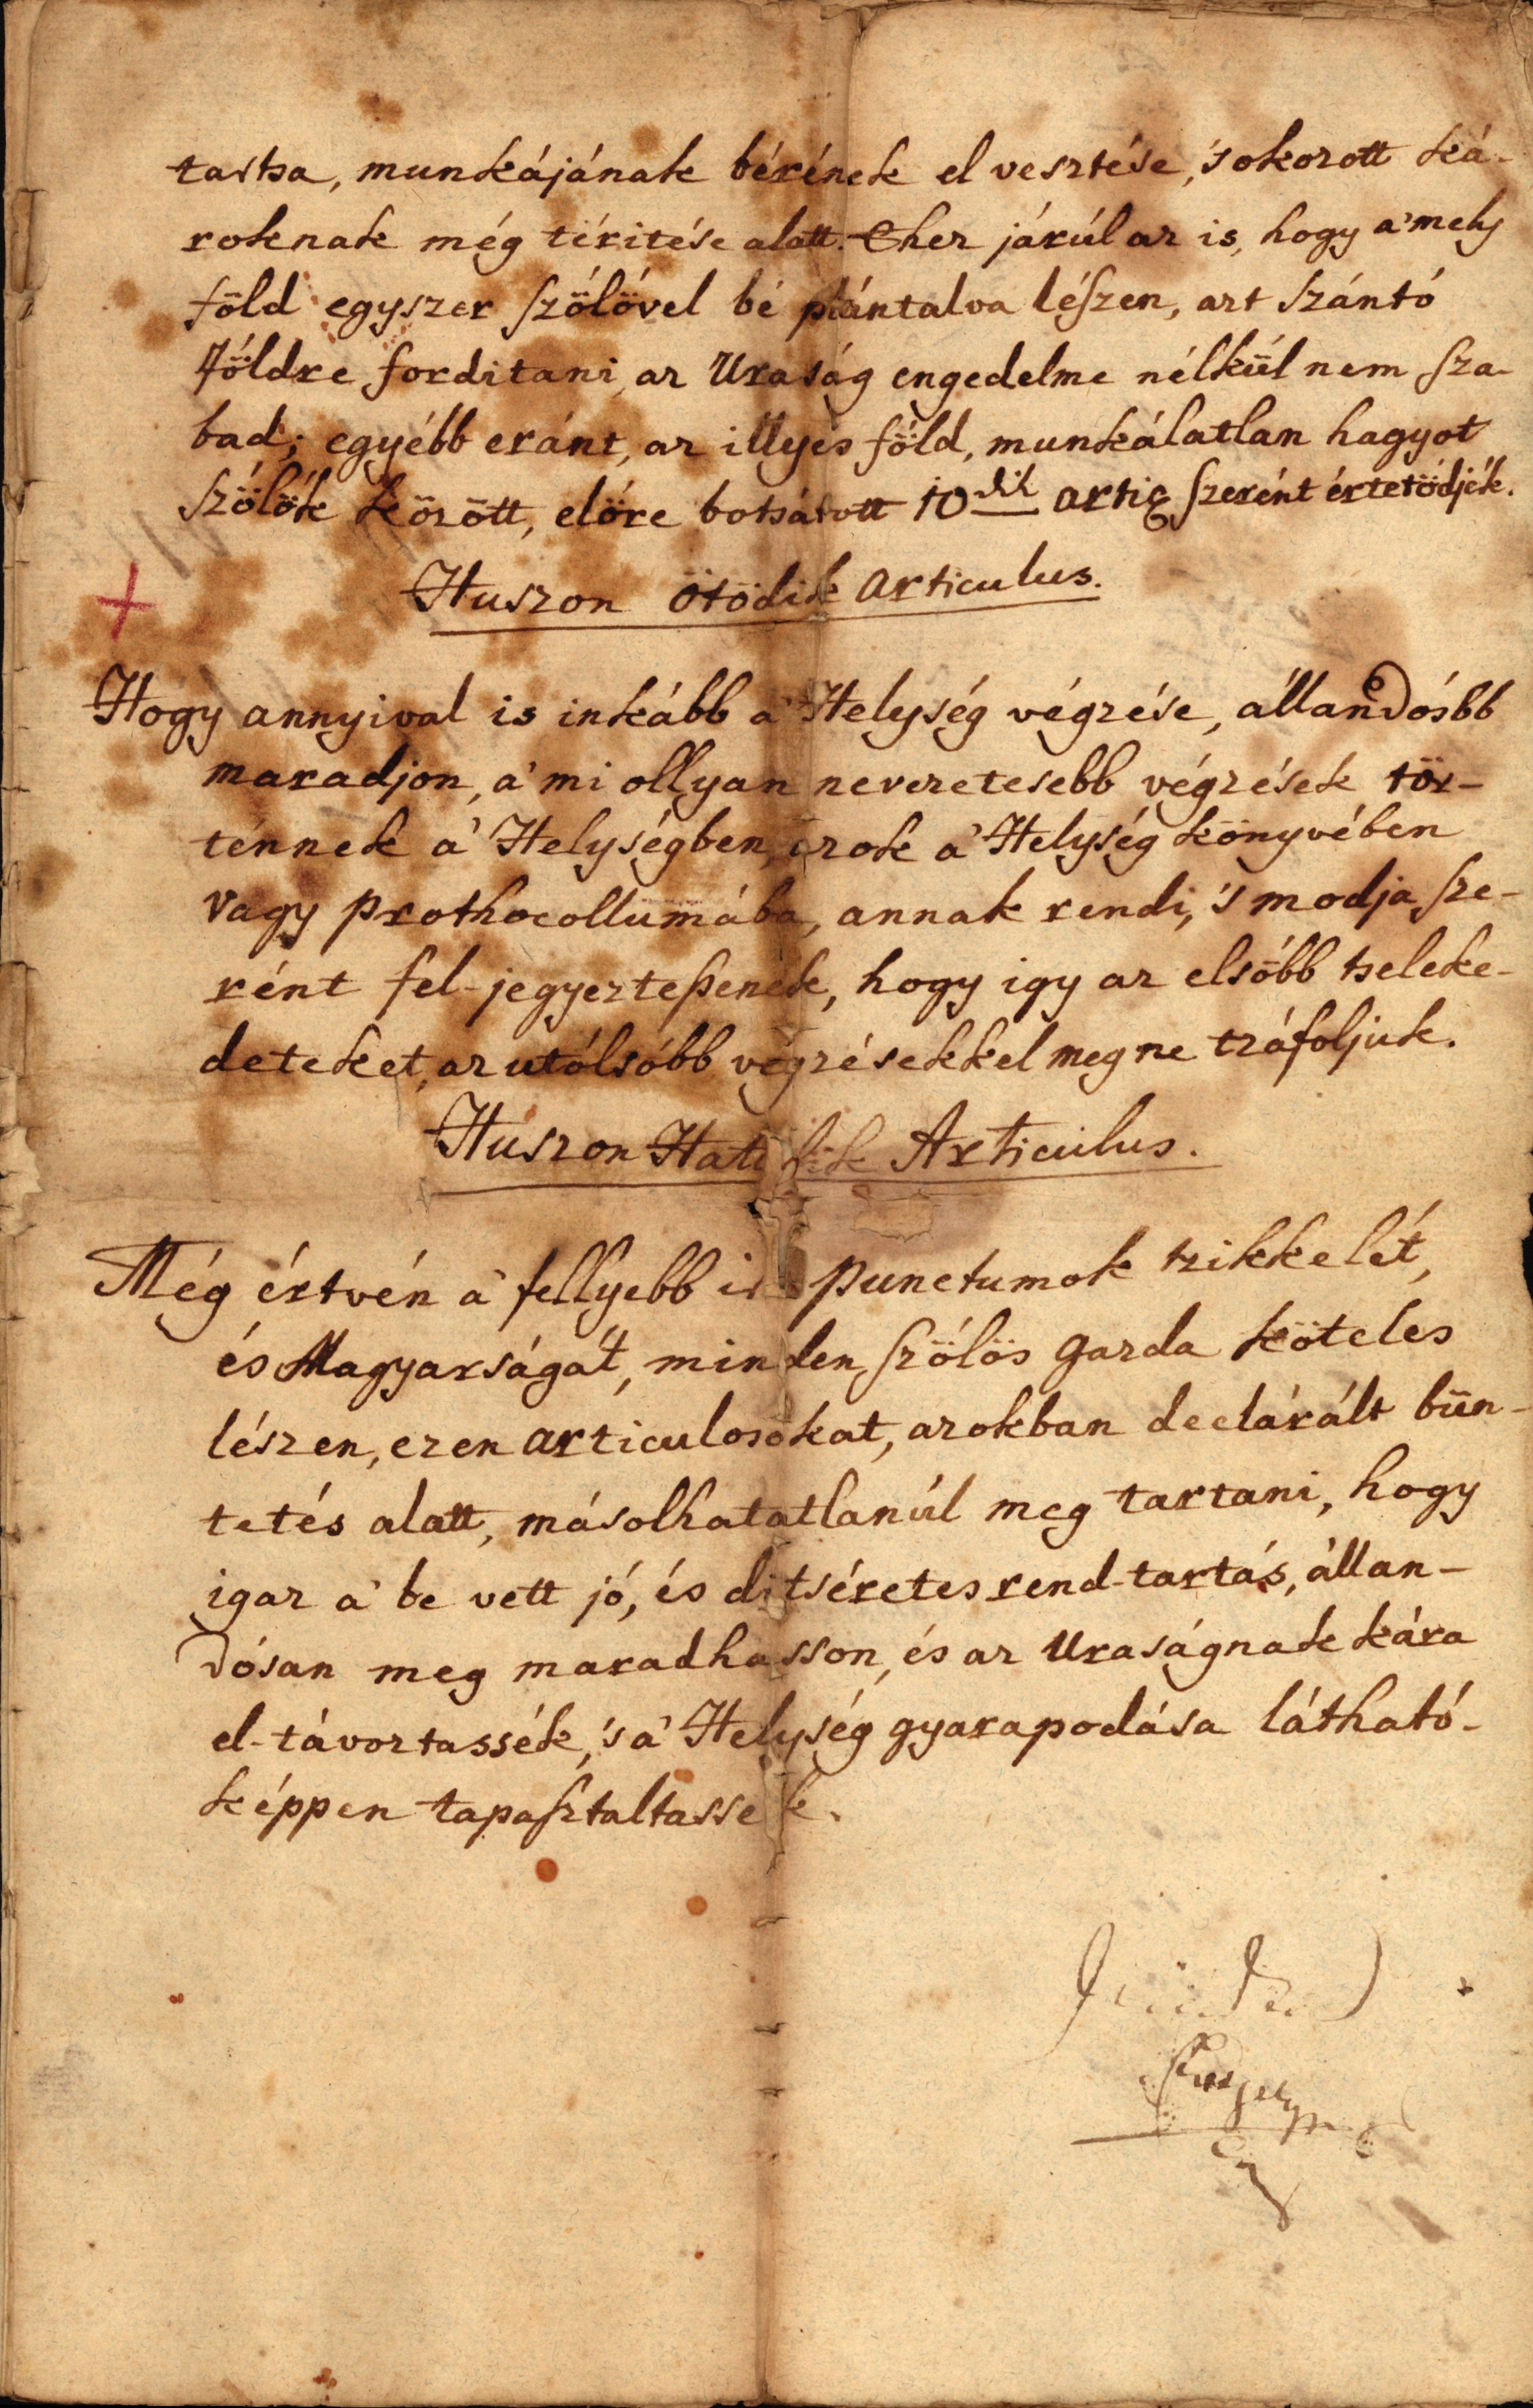 tartsa, munkájának bérének el vesztése, 's okozott ká-
roknak még téritése alatt. Ehez járúl az is, hogy a' mely
föld egyszer szőlővel bé plántalva lészen, azt szántó
földre forditani, az Uraság engedelme nélkül nem sza-
bad; egyébb eránt, az illyes föld, munkálatlan hagyot
szőlők között, előre botsátott 10dik artic szerént értetödjék.
Huszon ötödik articulus.
Hogy annyival is inkább a' Helység végzése, állandósbb
maradjon, a' mi ollyan nevezetesebb végzések tör-
ténnek a' Helységben, azok a' Helység könyvében
vagy prothocollumába, annak rendi, 's modja sze-
rént fel-jegyeztessenek, hogy igy az elsőbb tseleke-
deteket, az utólsóbb végzésekkel meg ne tzáfoljuk.
Huszon Hatodik Articulus.
Még értvén a' fellyebb punctumok tzikkelét,
és Magyarságát, minden szőlős gazda köteles
lészen, ezen articulosokat, azokban declárált bün-
tetés alatt, másolhatatlanúl meg tartani, hogy
igaz a' be vett jó, és ditséretes rend-tartás, állan-
dósan meg maradhasson, és az Uraságnak kára
el-távoztassék, 's a' Helység gyarapodása látható-
képpen tapasztaltassek.